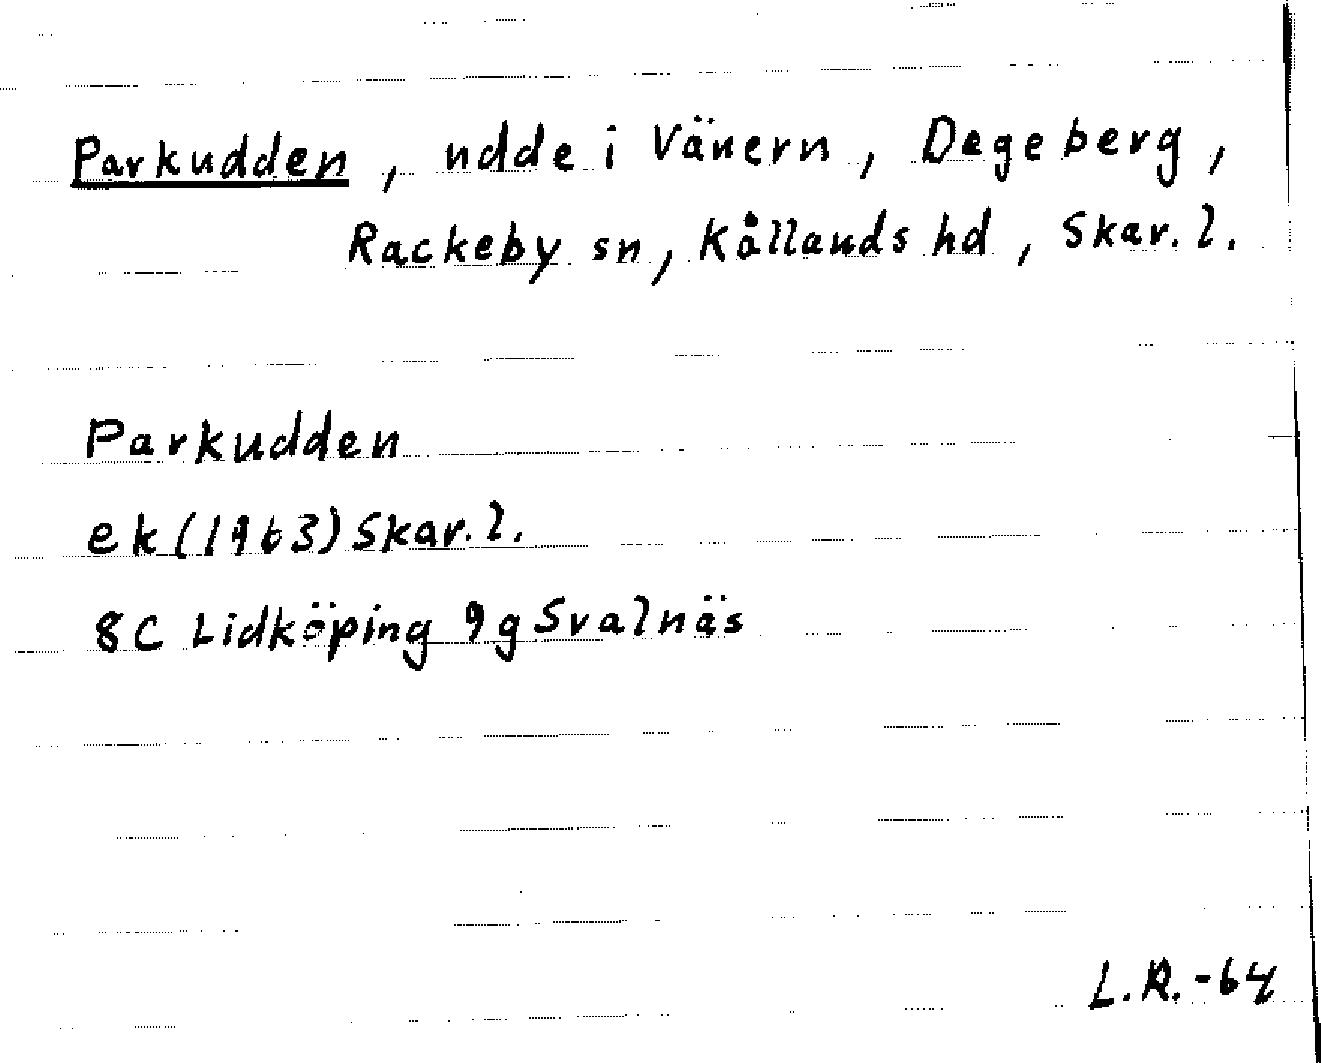 Parkudden, udde i Vänern, Degeberg,
Rackeby sn, Kållands hd, Skar. l.
Parkudden
ek (1963) Skar. l.
8C Lidköping 9g Svalnäs
L.R.-64